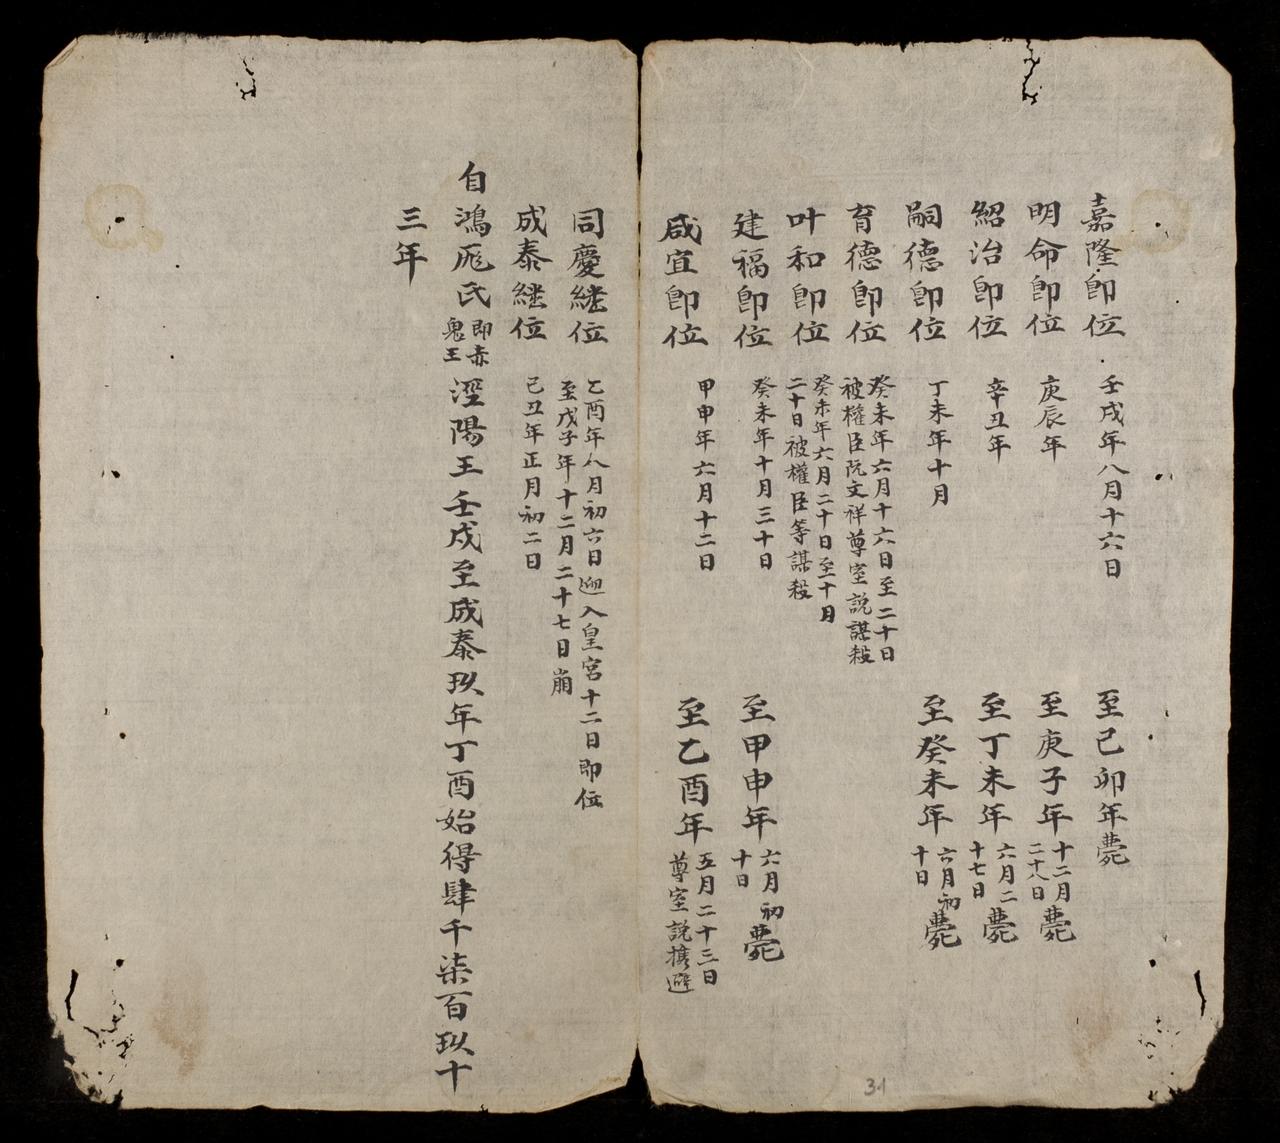 嘉隆即位 壬戌年八月十六日 至己卯年薨
明命即位 庚辰年 至庚子年十二月二十八日薨
紹治即位 辛丑年 至丁未年六月二十七日薨
嗣德即位 丁未年十月 至癸未年六月初十日薨
育德即位 癸未年六月十六日至二十日被權臣阮文祥尊室說謀殺
叶和即位 癸未年六月二十日至十月二十日被權臣等謀殺
建福即位 癸未年十月三十日 至甲申年六月初十日薨
咸宜即位 甲申年六月十二日 至乙酉年五月二十三日尊室說携避
同慶継位 乙酉年八月初六日迎入皇宮十二日即位至戊子年十二月二十七日崩
成泰継位 己丑年正月初二日
自鴻厖氏即赤鬼王涇陽王壬戌至成泰玖年丁酉始得肆千柒百玖十
三年
31